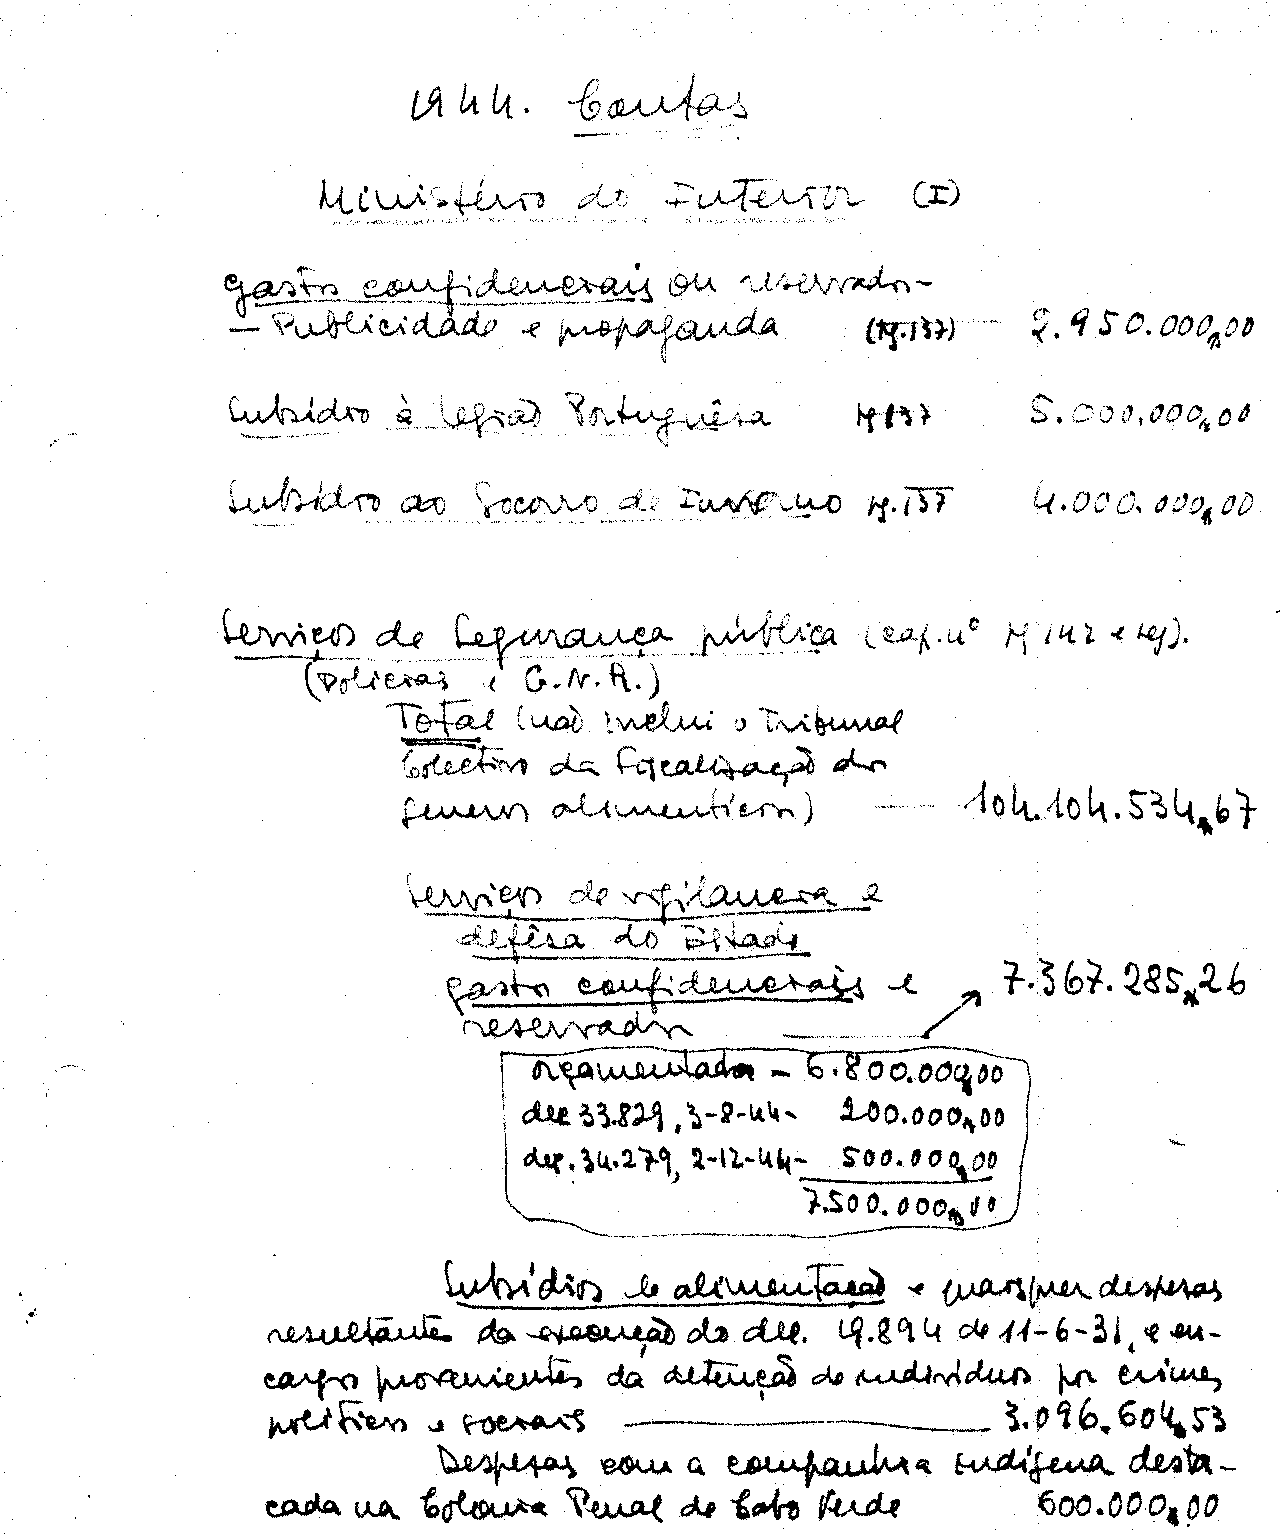 1944. Contas
Ministério do Interior (I)
Gastos confidenciais ou reservados
— Publicidade e propaganda (pg.137) — 2.950.000$00
Subsídio à Legião Portuguêsa pg 137 5.000.000$00
Subsídio ao Socorro de Inverno pg. 137 4.000.000$00
Serviços de Segurança pública (cap. nº pg 142 e seg).
(Policias e G.N.R.)
Total (não inclui o Tribunal
Colectivo da Fiscalização dos
generos alimenticios) — 104.104.534$67
Serviços de vigilancia e
defêsa do Estado
gastos confidenciais e 7.367.285$26
reservados
orçamentada - 6.800.000$00
dec 33.829, 3-8-44- 200.000$00
dec. 34.279, 2-12-44- 500.000$00
7.500.000$00
Subsídios de alimentação e quaisquer despesas
resultantes da execução do dec. 19.894 de 11-6-31, e en-
cargos provenientes da detenção de individuos por crimes
politicos e sociais — 3.096.604$53
Despesas com a companhia indígena desta-
cada na Colonia Penal de Cabo Verde 600.000$00